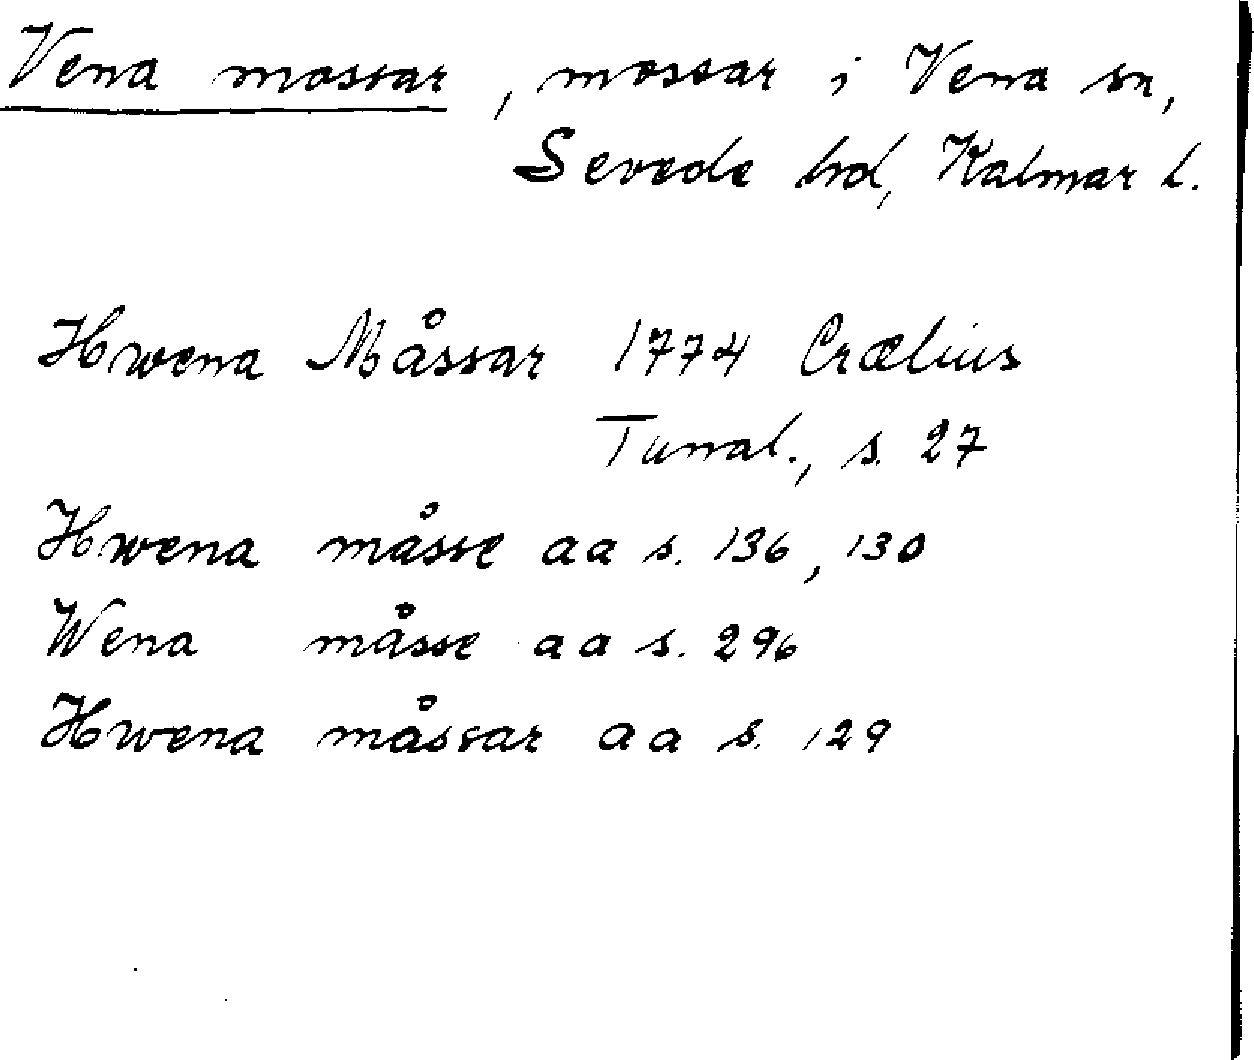 Vena mossar, mossar i Vena sn,
Sevede hd, Kalmar l.
Hwena Måssar 1774 Crælius
Tunal., s. 27
Hwena måsse aa s. 136, 130
Wena måsse aa s. 296
Hwena måssar aa s. 129